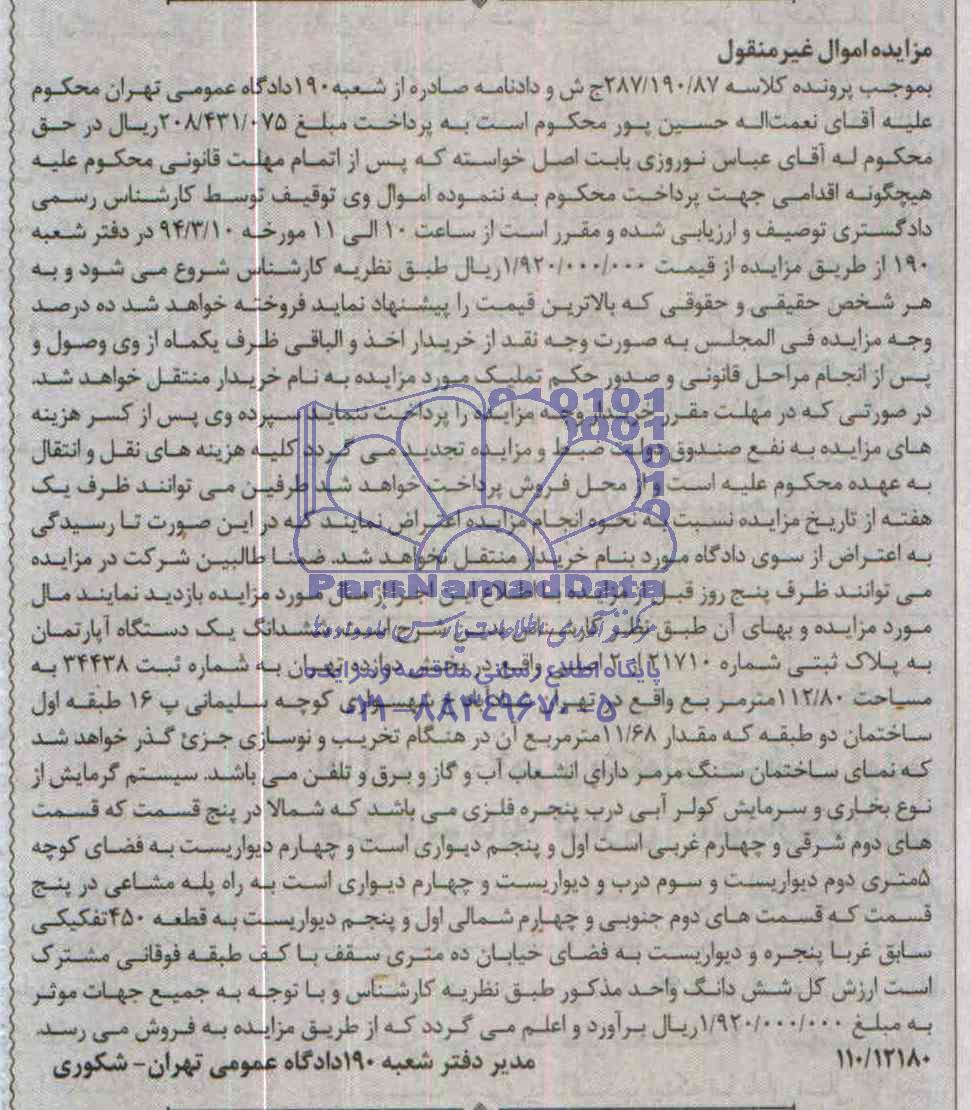 مزایده اموال غیر منقول
بموجب پرونده کلاسه ۲۸۷/۱۹۰/۸۷ج ش و دادنامه صادره از شعبه ۱۹۰دادگاه عمومی تهران محکوم
علیه آقای نعمت‌اله حسین پور محکوم است به پرداخت مبلغ ۲۰۸/۴۳۱/۰۷۵ریال در حق
محکوم له آقای عباس نوروزی بابت اصل خواسته که پس از اتمام مهلت قانونی محکوم علیه
هیچگونه اقدامی جهت پرداخت محکوم به ننموده اموال وی توقیف توسط کارشناس رسمی
دادگستری توصیف و ارزیابی شده و مقرر است از ساعت ۱۰ الی ۱۱ مورخه ۹۴/۳/۱۰ در دفتر شعبه
۱۹۰ از طریق مزایده از قیمت ۱/۹۲۰/۰۰۰/۰۰۰ریال طبق نظریه کارشناس شروع می شود و به
هر شخص حقیقی و حقوقی که بالاترین قیمت را پیشنهاد نماید فروخته خواهد شد ده درصد
وجه مزایده فی المجلس به صورت وجه نقد از خریدار اخذ و الباقی ظرف یکماه از وی وصول و
پس از انجام مراحل قانونی و صدور حکم تملیک مورد مزایده به نام خریدار منتقل خواهد شد.
در صورتی که در مهلت مقرر خریدار وجه مزایده را پرداخت ننماید سپرده وی پس از کسر هزینه
های مزایده به نفع صندوق دولت ضبط و مزایده تجدید می گردد کلیه هزینه های نقل و انتقال
به عهده محکوم علیه است و از محل فروش پرداخت خواهد شد طرفین می توانند ظرف یک
هفته از تاریخ مزایده نسبت به نحوه انجام مزایده اعتراض نمایند که در این صورت تا رسیدگی
به اعتراض از سوی دادگاه مورد بنام خریدار منتقل نخواهد شد. ضمنا طالبین شرکت در مزایده
می توانند ظرف پنج روز قبل از مزایده با اطلاع این اجرا از مال مورد مزایده بازدید نمایند مال
مورد مزایده و بهای آن طبق نظر کارشناس بدین شرح است، ششدانگ یک دستگاه آپارتمان
به پلاک ثبتی شماره ۲۱۷۱۰ از ۲ اصلی واقع در بخش دوازده تهران به شماره ثبت ۳۴۴۳۸ به
مساحت ۱۱۲/۸۰مترمربع واقع در تهران خ شهسواری کوچه سلیمانی پ ۱۶ طبقه اول
ساختمان دو طبقه که مقدار ۱۱/۶۸مترمربع آن در هنگام تخریب و نوسازی جزئ گذر خواهد شد
که نمای ساختمان سنگ مرمر دارای انشعاب آب و گاز و برق و تلفن می باشد. سیستم گرمایش از
نوع بخاری و سرمایش کولر آبی درب پنجره فلزی می باشد که شمالا در پنج قسمت که قسمت
های دوم شرقی و چهارم غربی است اول و پنجم دیواری است و چهارم دیواریست به فضای کوچه
۵متری دوم دیواریست و سوم درب و دیواریست و چهارم دیواری است به راه پله مشاعی در پنج
قسمت که قسمت های دوم جنوبی و چهارم شمالی اول و پنجم دیواریست به قطعه ۴۵۰تفکیکی
سابق غربا پنجره و دیواریست به فضای خیابان ده متری سقف با کف طبقه فوقانی مشترک
است ارزش کل شش دانگ واحد مذکور طبق نظریه کارشناس و با توجه به جمیع جهات موثر
به مبلغ ۱/۹۲۰/۰۰۰/۰۰۰ریال برآورد و اعلم می گردد که از طریق مزایده به فروش می رسد.
۱۱۰/۱۲۱۸۰ مدیر دفتر شعبه ۱۹۰دادگاه عمومی تهران- شکوری
ParsNamadData
پایگاه اطلاع رسانی مناقصه و مزایده
۰۲۱-۸۸۳۴۹۶۷۰-۵